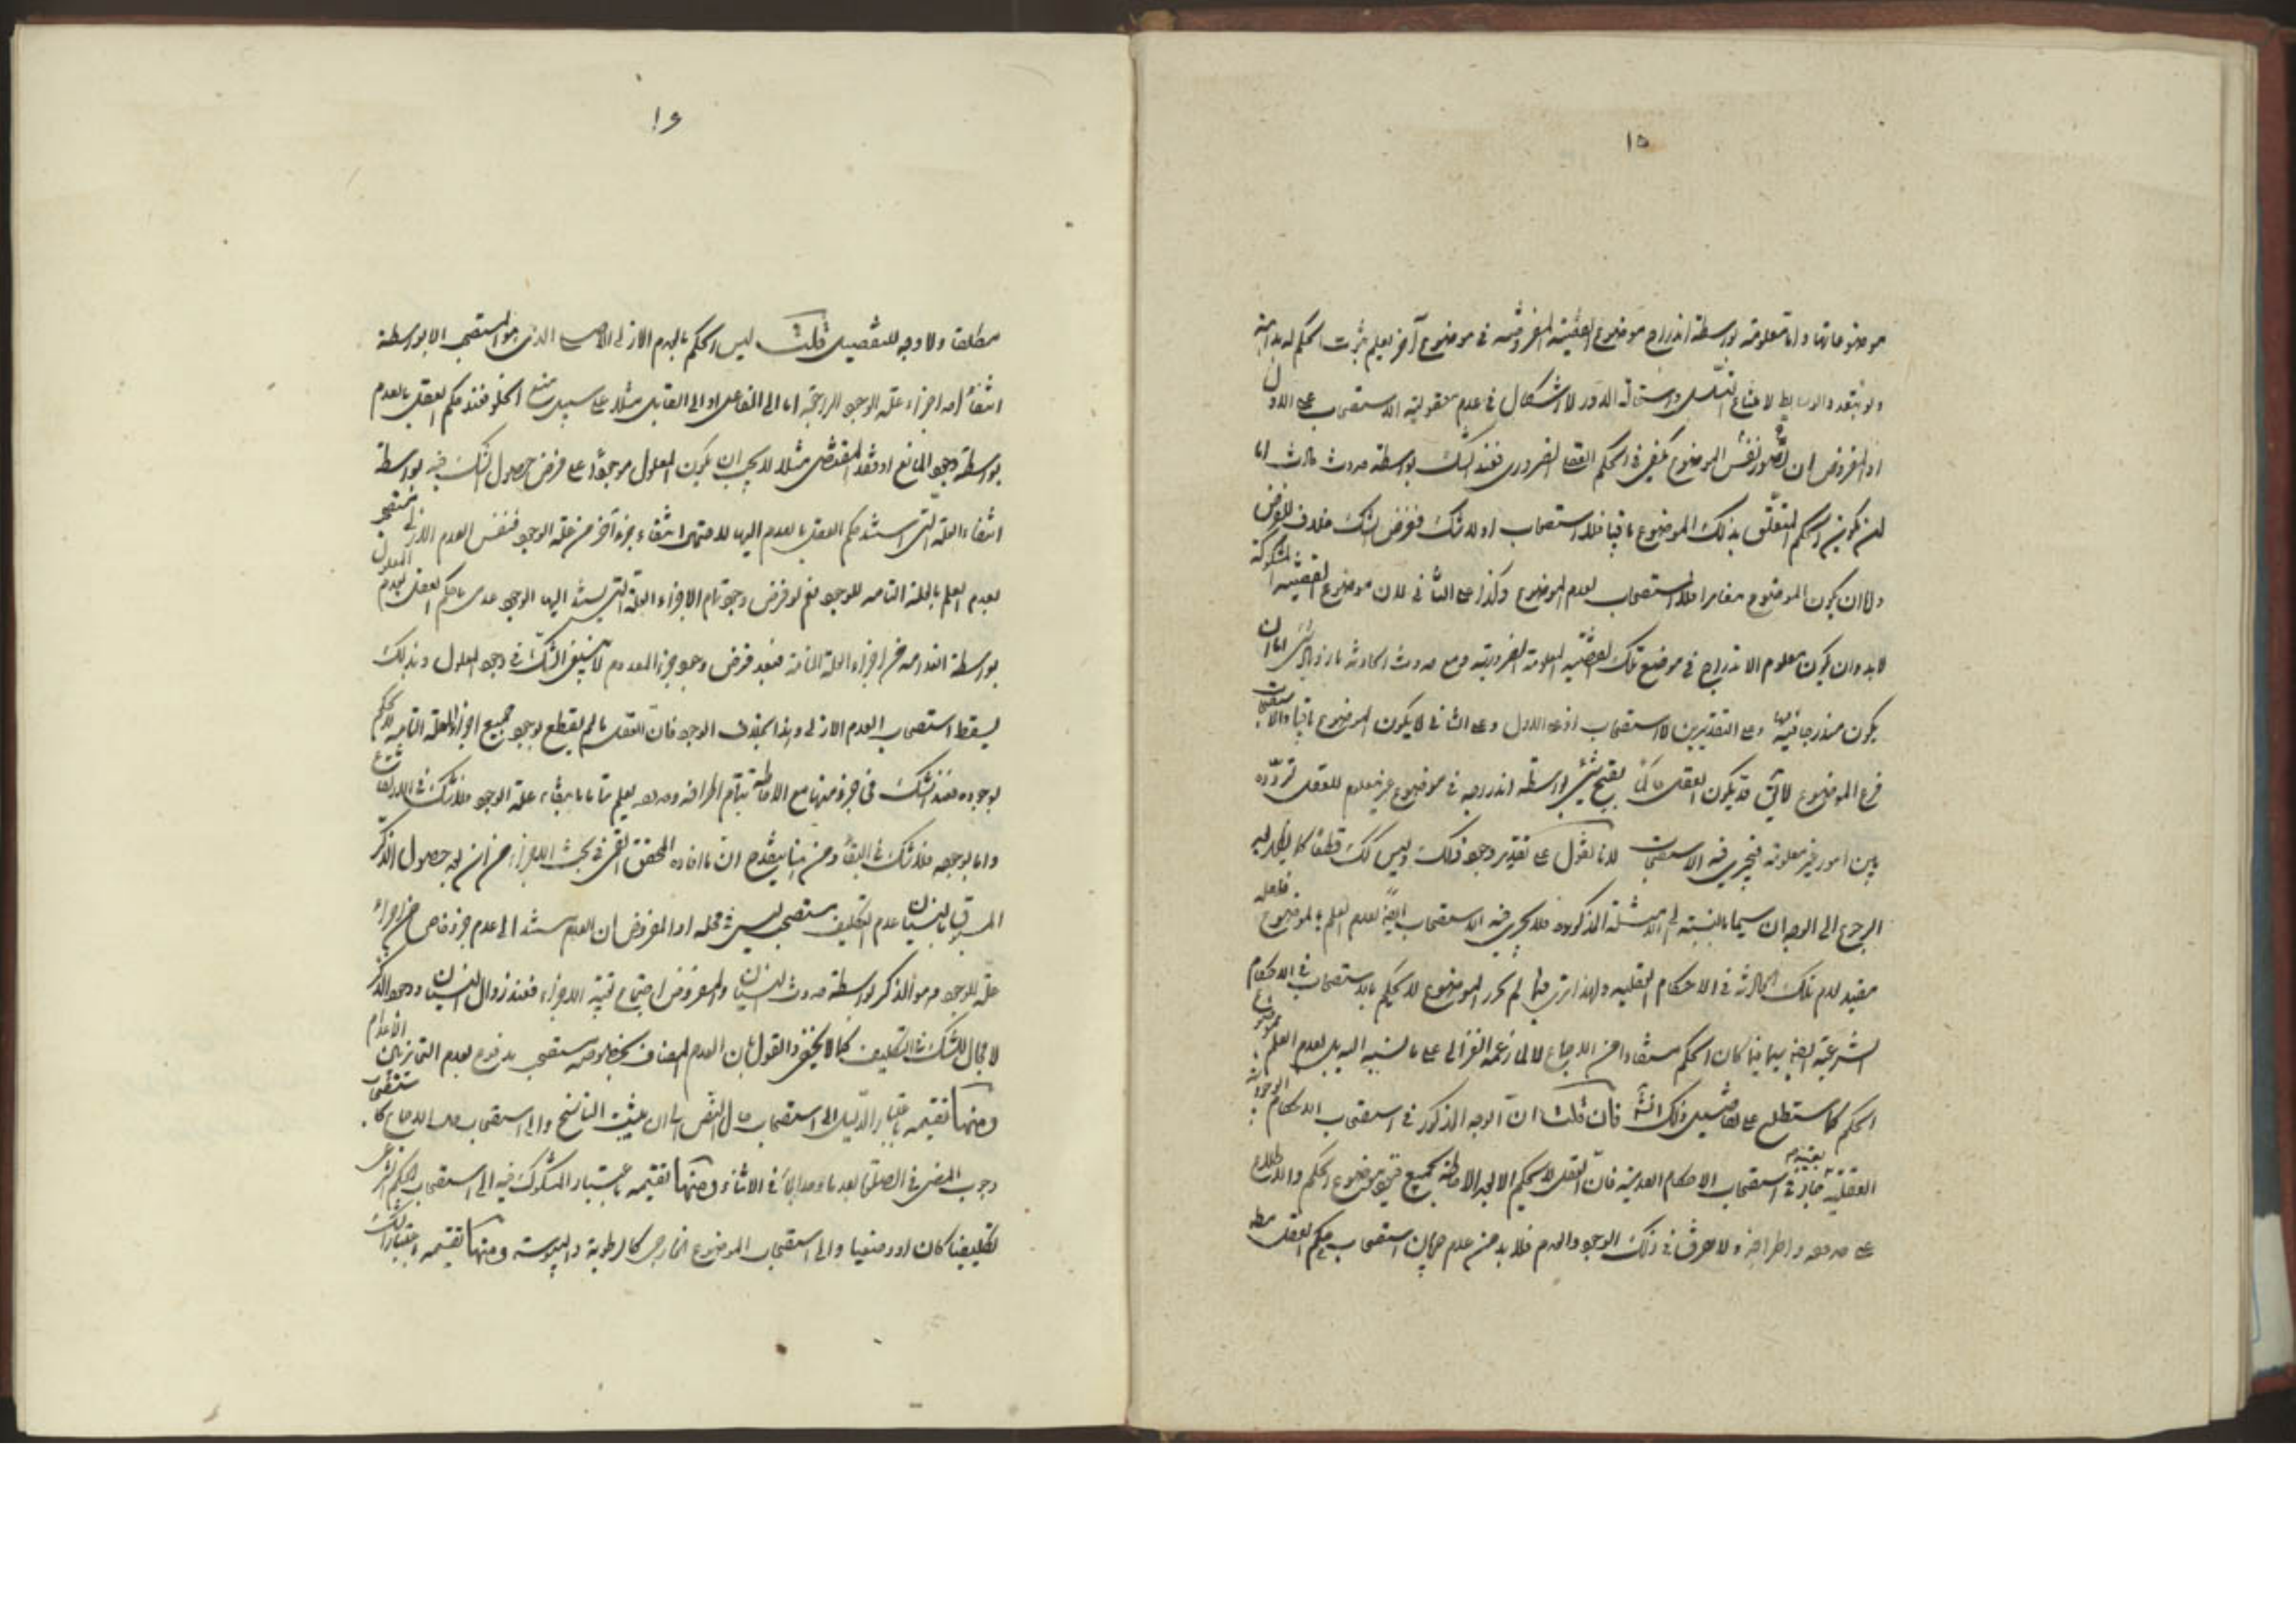 ١٥
موضوعاتها واما معلومة بواسطة اندراج موضوع القضية المفروضة في موضوع آخر يعلم بثبوت الحكم له بداهة
ولو بتعدد الوسايط لامتناع التسلسل واستحالة الدور لا اشكال في عدم معقولية الاستصحاب على الاول
اذ المفروض ان تصور نفس الموضوع يكفي في الحكم القطعي الضروري فعند الشك بواسطة حدوث حادث اما
ان يكون الحكم المتعلق بذلك الموضوع باقيا فلا استصحاب اذ لا شك ففرض الشك خلاف الفرض
واما ان يكون الموضوع مغايرا فلا استصحاب لعدم الموضوع وكذا على الثاني لان موضوع القضية المشكوكة
لابد وان يكون معلوم الاندراج في موضوع تلك القضية المعلومة الضرورية ومع حدوث الحادثة اما ان
يكون مندرجا فيها وعلى التقديرين لا استصحاب اذ على الاول وعلى الثاني لا يكون الموضوع باقيا والاستصحاب
فرع الموضوع لا يق قد يكون العقل حاكما بقبح شئ بواسطة اندراجه في موضوع غير معلوم للعقل تردده
بين امور غير معلومة فيجري فيه الاستصحاب لانا نقول على تقدير وجود ذلك وليس كك قطعا كما يظهر لمن
الرجوع الى الوجدان سيما بالنسبة الى الامثلة المذكورة فلا يجري فيه الاستصحاب ايضا لعدم العلم بالموضوع فلعله
مقيد لعدم تلك الحادثة في الاحكام العقلية ولهذا ترى فيما لم يحرز الموضوع لا يحكم بالاستصحاب في الاحكام
الشرعية ايضا سيما فيما كان الحكم مستفادا من الاجماع لا لما زعمه الغزالي على ما نسب اليه بل لعدم العلم بموضوع
الحكم كما ستطلع على تفصيل ذلك انشاء فان قلت ان الوجه المذكور في استصحاب الاحكام الوجودية
العقلية بعينه جار في استصحاب الاحكام العدمية فان العقل لا يحكم الا بعد الاحاطة بجميع قيود موضوع الحكم والاطلاع
على حدوده واطرافه ولا فرق في ذلك الوجود والعدم فلا بد من عدم جريان استصحاب حكم العقل مطلقا
١٦
مطلقا ولا وجه للتفصيل قلت ليس الحكم بالعدم الازلي الاصلي الذي هو المستصحب الا بواسطة
انتفاء احد اجزاء علة الوجود الراجعة اما الى الفاعل او الى القابل مثلا على سبيل منع الخلو فعند حكم العقل بالعدم
بواسطة وجود المانع او فقد المقتضي مثلا لا يجب ان يكون المعلول موجودا على فرض حصول الشك فيه بواسطة
انتفاء العلة التي استند حكم العقل بالعدم اليها لاحتمال انتفاء جزء آخر من علة الوجود فنفس العدم الازلي مستصحب
لعدم العلم بالعلة التامة للوجود نعم لو فرض وجود تمام الاجزاء العلة التي يستند اليها الوجود عدى ما حكم العقل بعدم المعلول
بواسطة انعدامه من اجزاء العلة التامة فبعد فرض وجود جزء المعدوم لا ينبغي الشك في وجود المعلول وبذلك
يسقط استصحاب العدم الازلي وهذا بخلاف الوجود فان العقل ما لم يقطع بوجود جميع اجزاء العلة التامة لا يحكم
بوجوده فعند الشك في جزء منها مع الاحاطة بتمام اطرافه وحدوده يعلم اما ببقاء علة الوجود فلا شك في الارتفاع
واما بوجوده فلا شك في البقاء ومن هنا ينقدح ان ما افاده المحقق القمي في بحث الاجزاء من انه بعد حصول الذكر
المسبوق بالنسيان عدم التكليف مستصحب ليس في محله اذ المفروض ان العدم مستند الى عدم جزء خاص من اجزاء
علة الوجود وهو الذكر بواسطة حدوث النسيان والمفروض اجتماع بقية الاجزاء فعند زوال النسيان ووجود الذكر
لا مجال للشك في التكليف كما لا يخفى والقول بان العدم المضاف بخصوصه مستصحب مدفوع بعدم التمايز بين الاعدام
ومنها تقسيمه باعتبار الدليل الى استصحاب حال النص الى ان يثبت الناسخ والى استصحاب حال الاجماع كاستصحاب
وجوب المضي في الصلوة بعد ما وجد الماء في الاثناء ومنها تقسيمه باعتبار المشكوك فيه الى استصحاب الحكم الشرعي
تكليفيا كان او وضعيا والى استصحاب الموضوع الخارجي كالرطوبة واليبوسة ومنها تقسيمه باعتبار الشك